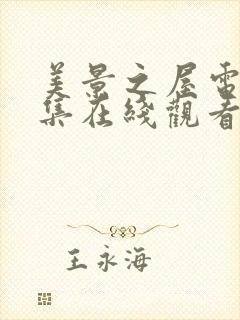 美景之屋電
集在綫觀看
王永海